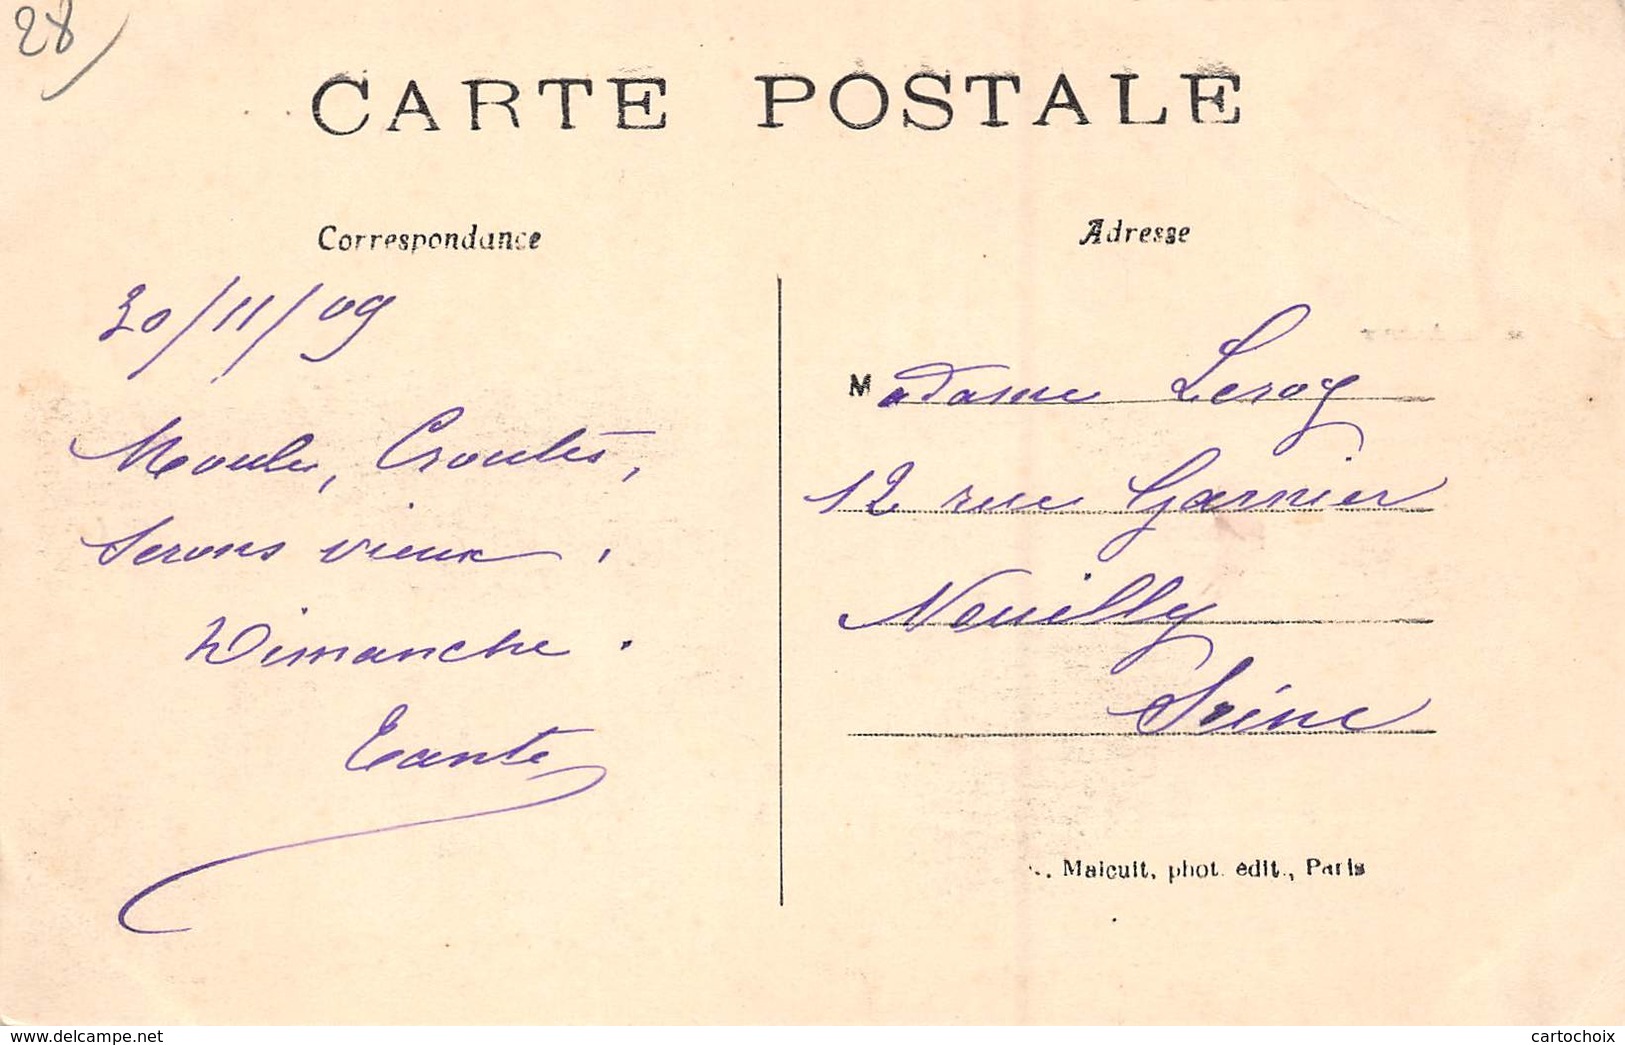 28
CARTE POSTALE
Correspondance
30/11/09
Moules, Croutes,
serons vieux,
Dimanche.
Tante
Adresse
Madame Leroy
12 rue Garnier
Neuilly
Seine
Malcuit, phot. édit., Paris
www.delcampe.net
cartochoix